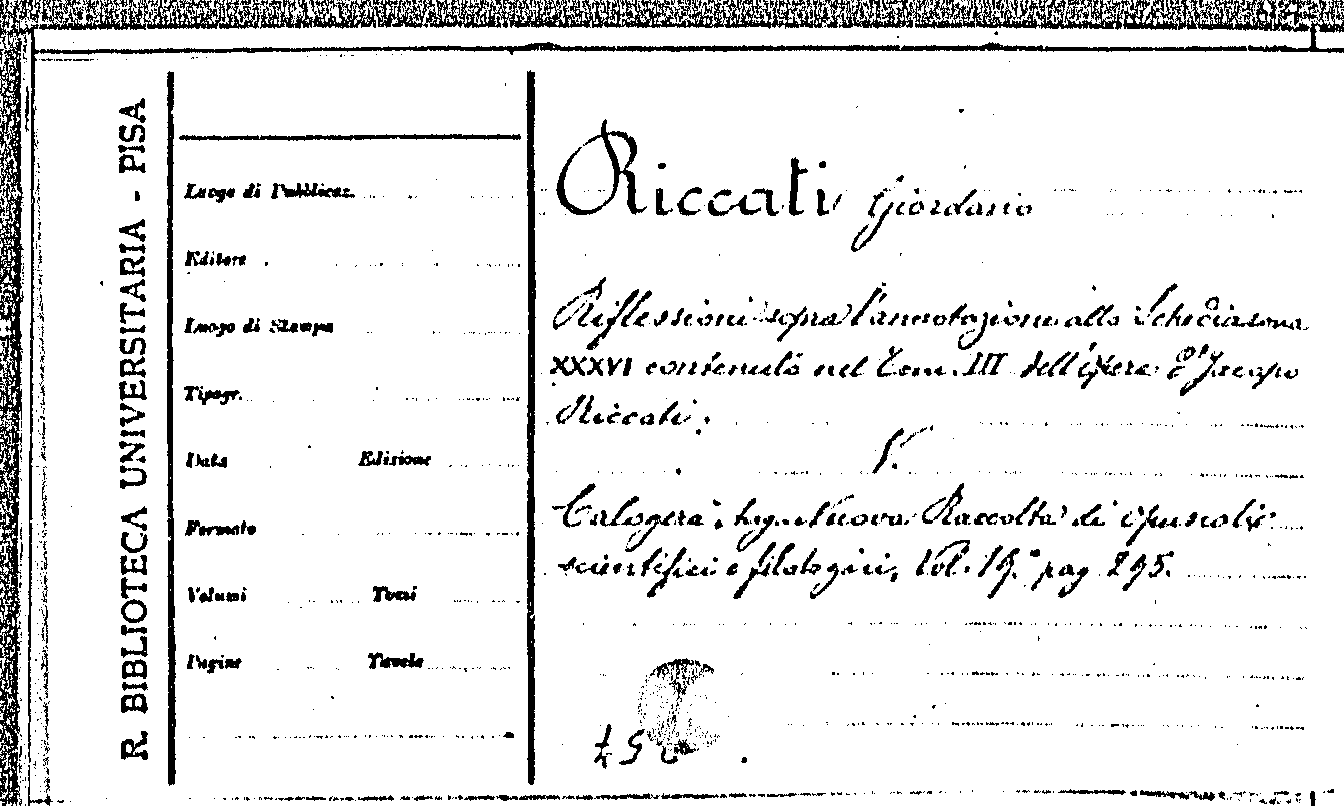 R. BIBLIOTECA UNIVERSITARIA - PISA
Luogo di Pubblicaz.
Editore
Luogo di Stampa
Tipogr.
Data Edizione
Formato
Volumi Tomi
Pagine Tavole
Riccati Giordano
Riflessioni sopra l'annotazione allo Schediasma
XXXVI contenuto nel Tom. III dell'opera d'Jacopo
Riccati.
V.
Calogerà, Nuova Raccolta di opuscoli
scientifici e filologici, Vol. 19.° pag 295.